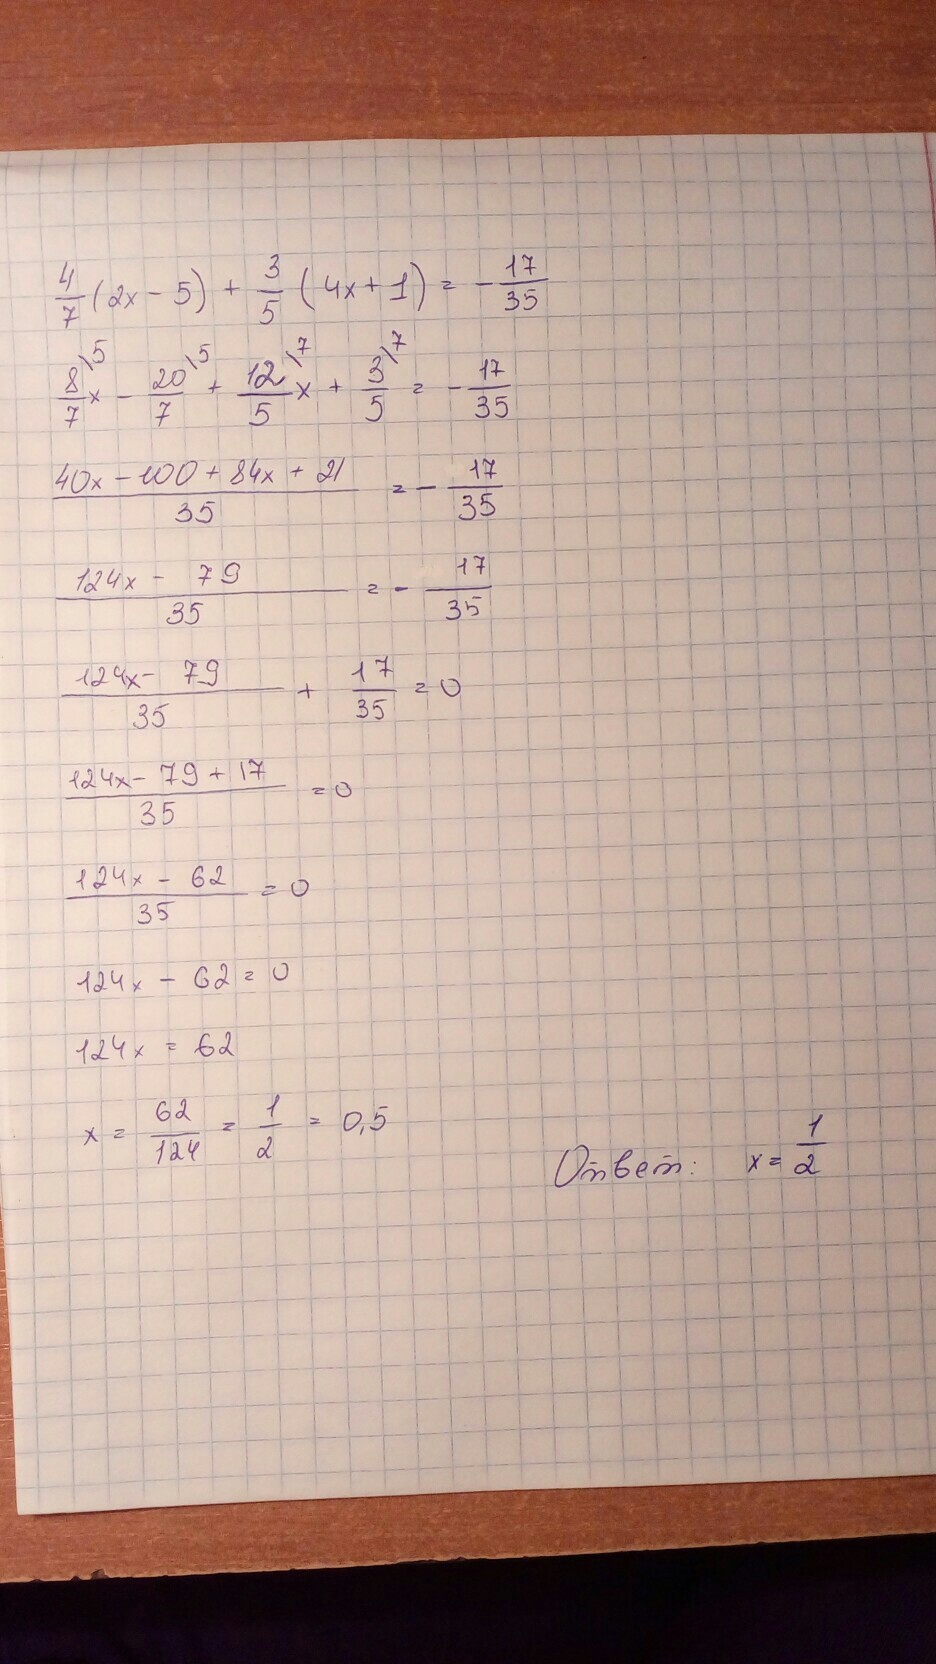 4/7 (2x - 5) + 3/5 (4x + 1) = - 17/35
8\5/7 x - 20\5/7 + 12\7/5 x + 3\7/5 = - 17/35
40x - 100 + 84x + 21/35 = - 17/35
124x - 79/35 = - 17/35
124x - 79/35 + 17/35 = 0
124x - 79 + 17/35 = 0
124x - 62/35 = 0
124x - 62 = 0
124x = 62
x = 62/124 = 1/2 = 0,5
Ответ: x = 1/2